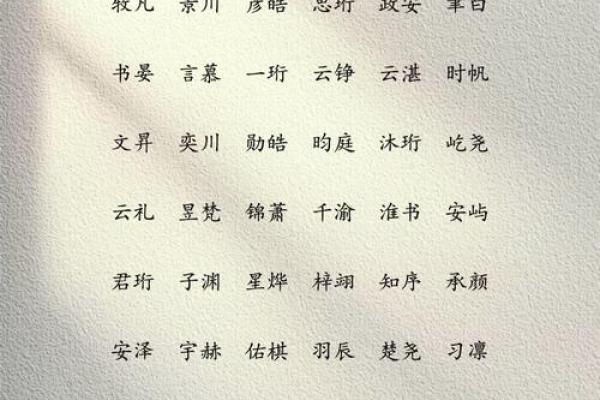 牧凡 景川 彦皓 思珩 政安 聿白
书晏 言慕 一珩 云铮 云湛 时帆
文昇 奕川 勋皓 昀庭 沐珩 屹尧
云礼 昱梵 锦萧 千渝 淮书 安屿
君珩 子渊 星烨 梓翊 知序 承颜
安泽 宇赫 佑棋 羽辰 楚尧 习凛